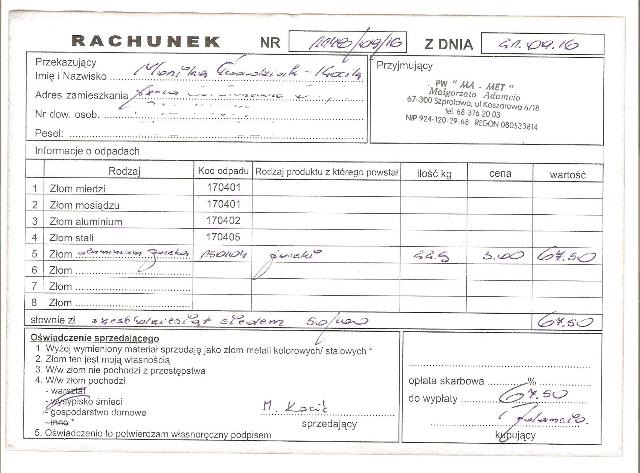 RACHUNEK NR 1148/09/16 Z DNIA 21.09.16
Przekazujący
Imię i Nazwisko Monika
Adres zamieszkania
Nr dow. osob.
Pesel:
Przyjmujący
PW "MA - MET"
Małgorzata Adamcio
67-300 Szprotawa, ul. Koszarowa 6/18
tel. 68 376 20 03
NIP 924-120-29-68 REGON 080533814
Informacje o odpadach
Rodzaj Kod odpadu Rodzaj produktu z którego powstał ilość kg cena wartość
1 Złom miedzi 170401
2 Złom mosiądzu 170401
3 Złom aluminium 170402
4 Złom stali 170405
5 Złom aluminium puszka 150104 puszki 22.5 3.00 67.50
6 Złom
7 Złom
8 Złom
słownie zł sześćdziesiąt siedem 50/100 67.50
Oświadczenie sprzedającego
1. Wyżej wymieniony materiał sprzedaję jako złom metali kolorowych/ stalowych *
2. Złom ten jest moją własnością
3. W/w złom nie pochodzi z przestępstwa
4. W/w złom pochodzi
- warsztat
- wysypisko śmieci
- gospodarstwo domowe
- inne *
5. Oświadczenie to potwierdzam własnoręczny podpisem
M.
sprzedający
opłata skarbowa %
do wypłaty 67.50
kupujący